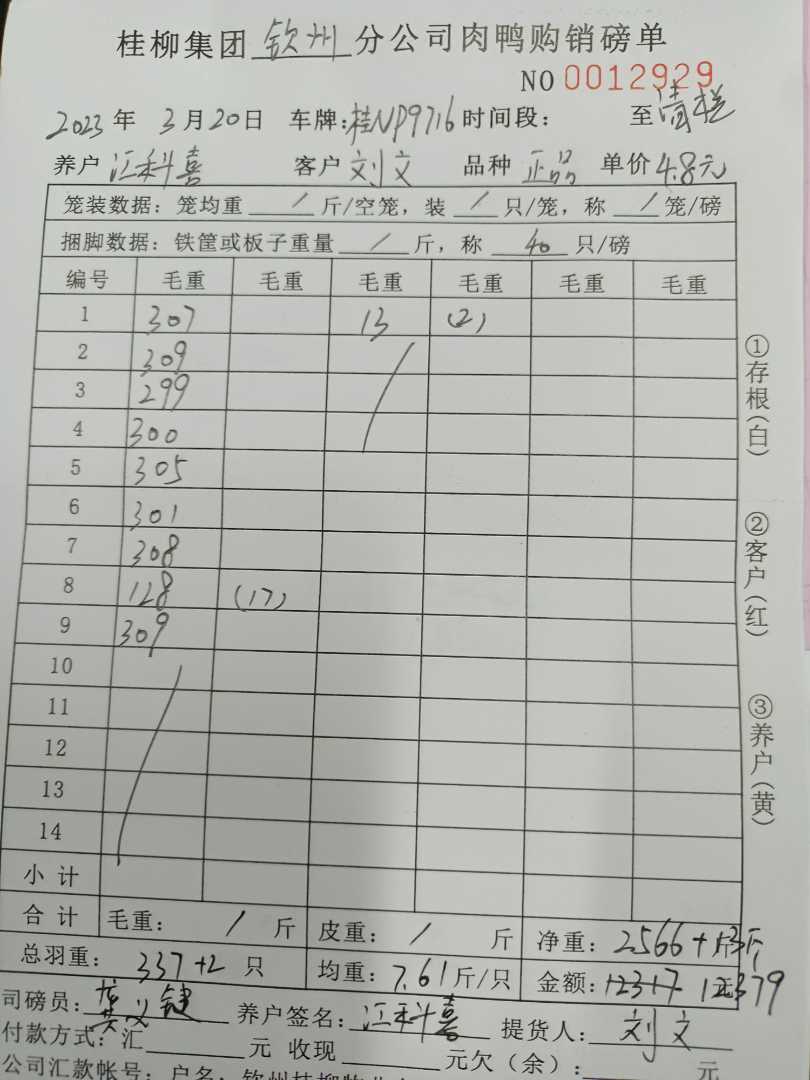 桂柳集团 钦州 分公司肉鸭购销磅单
NO 0012929
2023 年 3 月 20 日 车牌:桂NP9716 时间段: 至 清栏
养户 江科喜 客户 刘文 品种 正品 单价 4.8元
笼装数据: 笼均重 / 斤/空笼, 装 / 只/笼, 称 / 笼/磅
捆脚数据: 铁筐或板子重量 / 斤, 称 40 只/磅
编号 毛重 毛重 毛重 毛重 毛重 毛重
1 307 13 (2)
2 309
3 299
4 300
5 305
6 301
7 308
8 128 (17)
9 309
10
11
12
13
14
小计
合计 毛重: / 斤 皮重: / 斤 净重: 2566+13斤
总羽重: 337+2 只 均重: 7.61斤/只 金额: 12317 12379元
司磅员: 黄义键 养户签名: 江科喜 提货人: 刘文
付款方式: 汇 元 收现 元欠(余): 元
公司汇款帐号: 户名: 钦州桂柳牧业
①存根(白)
②客户(红)
③养户(黄)